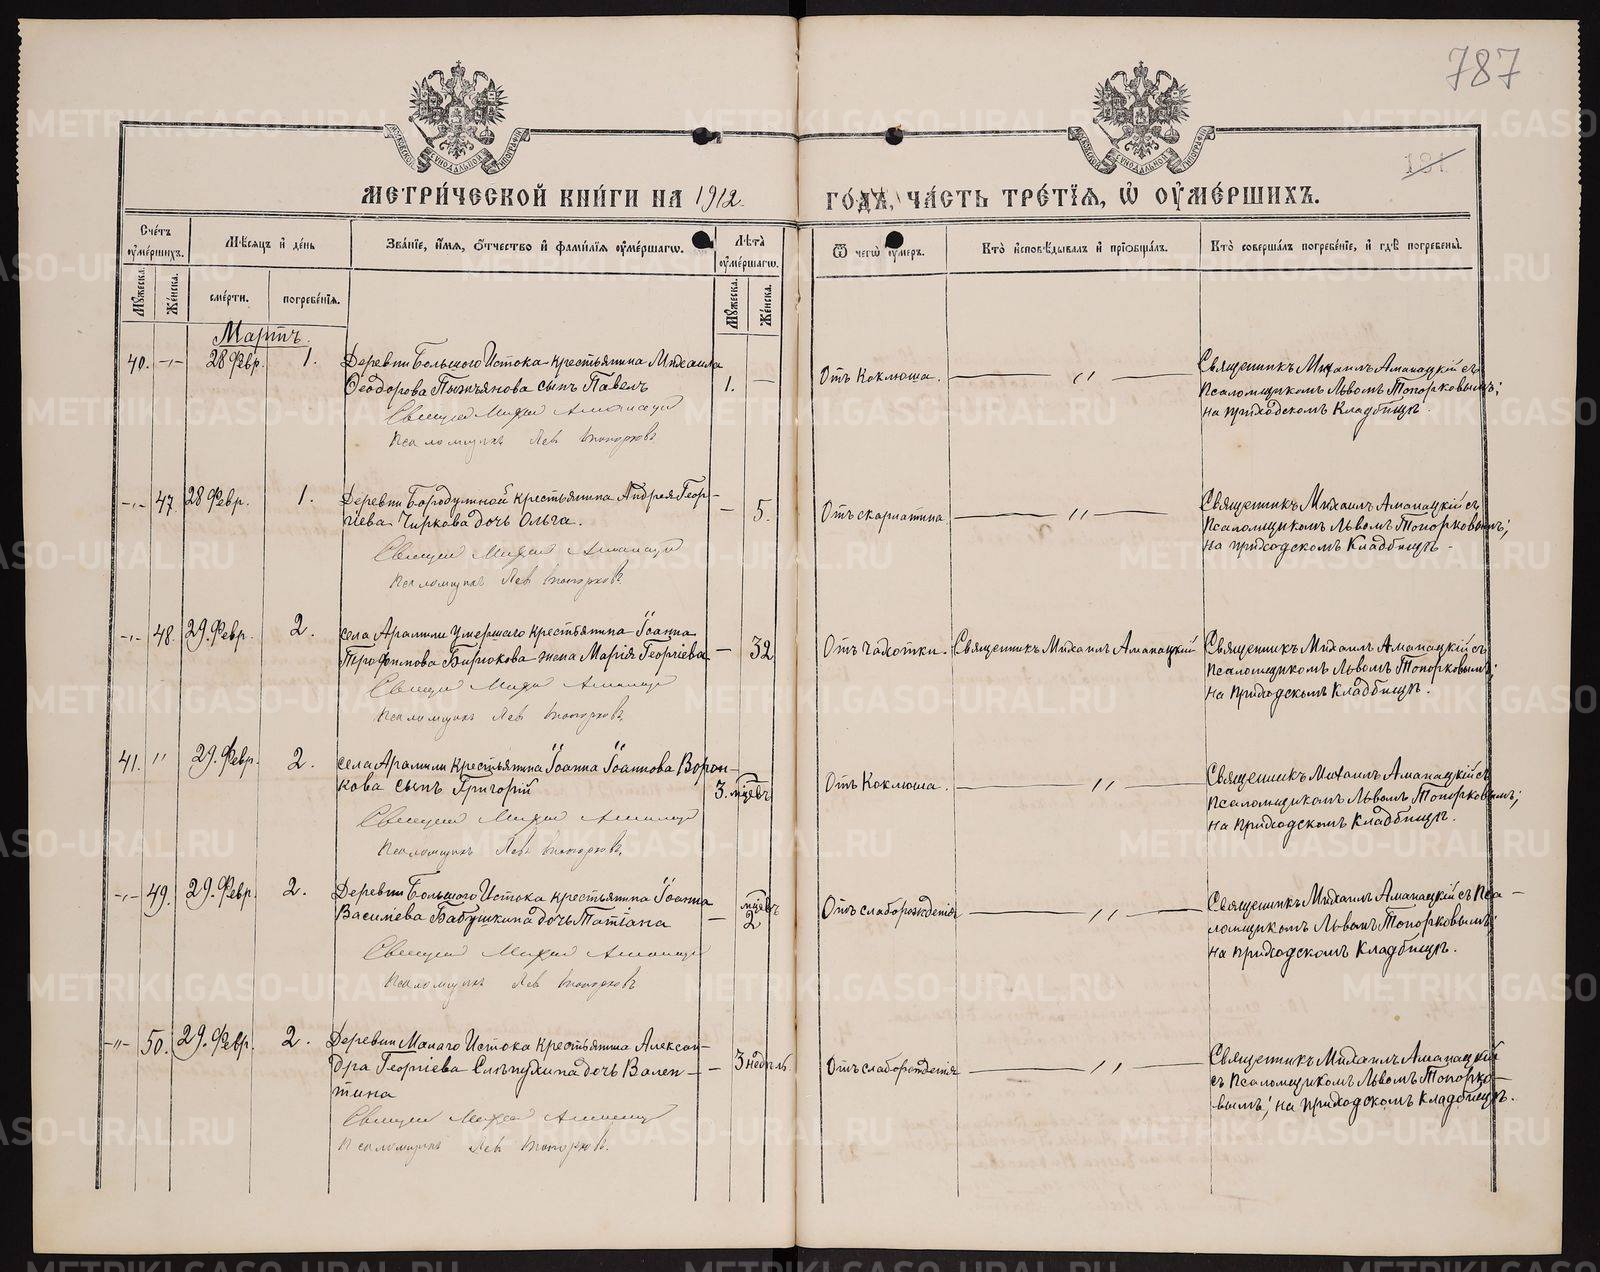 787
181
МЕТРИ́ЧЕСКОЙ КНИ́ГИ НА 1912.
ГО́ДЪ, ЧА́СТЬ ТРЕ́ТЇѦ, Ѡ҆ ОУ҆МЕ́РШИХЪ.
Сче́тъ оу҆ме́ршихъ.
Мꙋ́жеска.
Же́нска.
Мѣ́сѧцъ и҆ де́нь
сме́рти.
погребе́нїѧ.
Зва́нїе, и҆́мѧ, ѻ҆́тчество и҆ фами́лїѧ оу҆ме́ршагѡ.
Лѣ́та оу҆ме́ршагѡ.
Мꙋ́жеска.
Же́нска.
Ѿ чегѡ̀ оу҆́меръ.
Кто̀ и҆сповѣ́дывалъ и҆ прїѡбща́лъ.
Кто̀ соверша́лъ погребе́нїе, и҆ гдѣ̀ погребены̀.
Мартъ.
40. -"- 28 Февр. 1. Деревни Большого Истока крестьянина Михаила
Ѳеодорова Пьянкова сынъ Павелъ 1. —
Священ Михаи Аманацкі
Псаломщикъ Лев Топорковъ
Отъ Коклюша. — " —
Священникъ Михаилъ Аманацкій съ
Псаломщикомъ Львомъ Топорковымъ;
на приходскомъ Кладбищѣ.
-"- 47. 28 Февр. 1. Деревни Бородулиной крестьянина Андрея Геор-
гіева Чиркова дочь Ольга. — 5.
Священ Михаи Аманацкі
Псаломщикъ Лев Топорковъ.
Отъ скарлатина — " —
Священникъ Михаилъ Аманацкій съ
Псаломщикомъ Львомъ Топорковымъ;
на приходскомъ Кладбищѣ.
-"- 48. 29. Февр. 2. села Арамили умершаго крестьянина Іоанна
Трофимова Бирюкова жена Марія Георгіева — 32
Священ Михаи Аманацкі
Псаломщикъ Лев Топорковъ.
Отъ чахотки. Священникъ Михаилъ Аманацкій
Священникъ Михаилъ Аманацкій съ
Псаломщикомъ Львомъ Топорковымъ;
на приходскомъ Кладбищѣ.
41. " 29. Февр. 2. села Арамили крестьянина Іоанна Іоаннова Ворон-
кова сынъ Григорій 3. мцевъ
Священ Михаи Аманацкі
Псаломщикъ Лев Топорковъ.
Отъ Коклюша. — " —
Священникъ Михаилъ Аманацкій съ
Псаломщикомъ Львомъ Топорковымъ;
на приходскомъ Кладбищѣ.
-"- 49. 29. Февр. 2. Деревни Большого Истока крестьянина Іоанна
Василіева Бабушкина дочь Татіана — мцевъ 2
Священ Михаи Аманацкі
Псаломщикъ Лев Топорковъ
Отъ слаборожденія — " —
Священникъ Михаилъ Аманацкій съ Пса-
ломщикомъ Львомъ Топорковымъ;
на приходскомъ Кладбищѣ.
-"- 50. 29. Февр. 2. Деревни Малаго Истока крестьянина Алексан-
дра Георгіева Слѣпухина дочь Вален-
тина — 3 недѣль
Священ Михаи Аманацкі
Псаломщикъ Лев Топорковъ.
Отъ слаборожденія — " —
Священникъ Михаилъ Аманацкій
съ Псаломщикомъ Львомъ Топорко-
вымъ; на приходскомъ Кладбищѣ.
METRIKI.GASO-URAL.RU